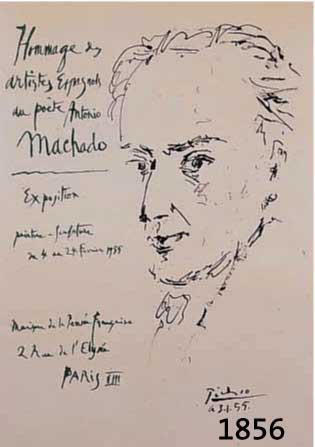 Hommage des
artistes Espagnols
au poète Antonio
Machado
Exposition
peinture - sculpture
du 4 au 24 février 1955
Maison de la Pensée française
2 Rue de l'Elysée
PARIS VIII
Picasso
3.1.55.
1856